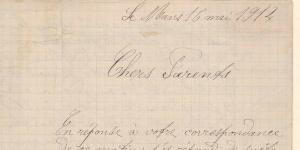 Le Mans 16 mai 1914
Chers Parents
En réponse à votre correspondance